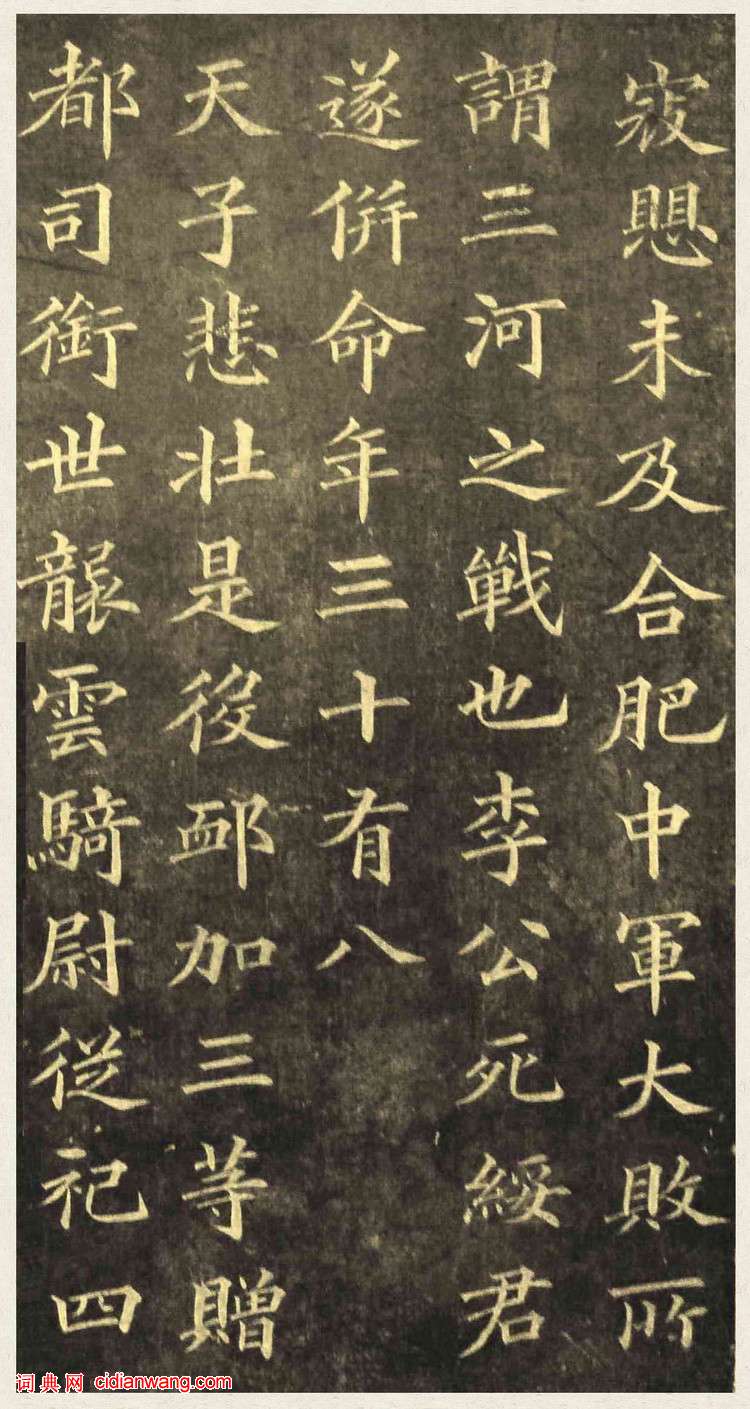 寇㒻未及合肥中軍大敗所
謂三河之戰也李公死綏君
遂併命年三十有八
天子悲壯是役卹加三等贈
都司銜世襲雲騎尉從祀四
词典网 cidianwang.com